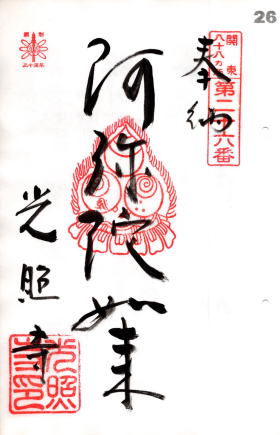 26
奉納
関東
八十八カ所
第二十六番
阿弥陀如来
光照寺
光照
寺印